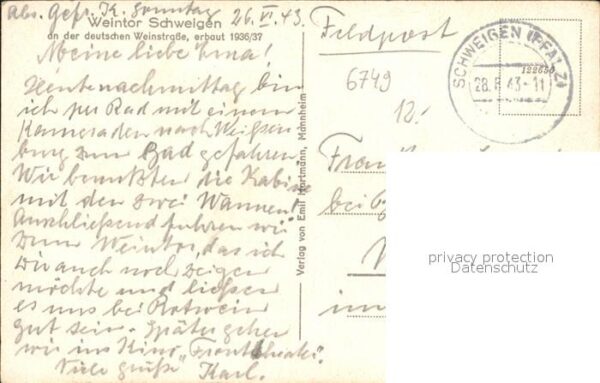 Abs. Gefr. K. Sonntag
26. VI. 43.
Weintor Schweigen
an der deutschen Weinstraße, erbaut 1936/37
Meine liebe Erna!
Heute nachmittag bin
ich per Rad mit einem
Kameraden nach Weißen-
burg zum Bad gefahren.
Wir benutzten die Kabine
mit den zwei Wannen!
Anschließend fuhren wir
zum Weintor, das ich
Dir auch noch zeigen
möchte und ließen
es uns bei Rotwein
gut sein. Später gehen
wir ins Kino „Fronttheater".
Viele Grüße Karl.
Verlag von Emil Hartmann, Mannheim
Feldpost
6749
12.-
SCHWEIGEN (PFALZ)
28.6.43-11
122650
Frau
bei
im
privacy protection
Datenschutz